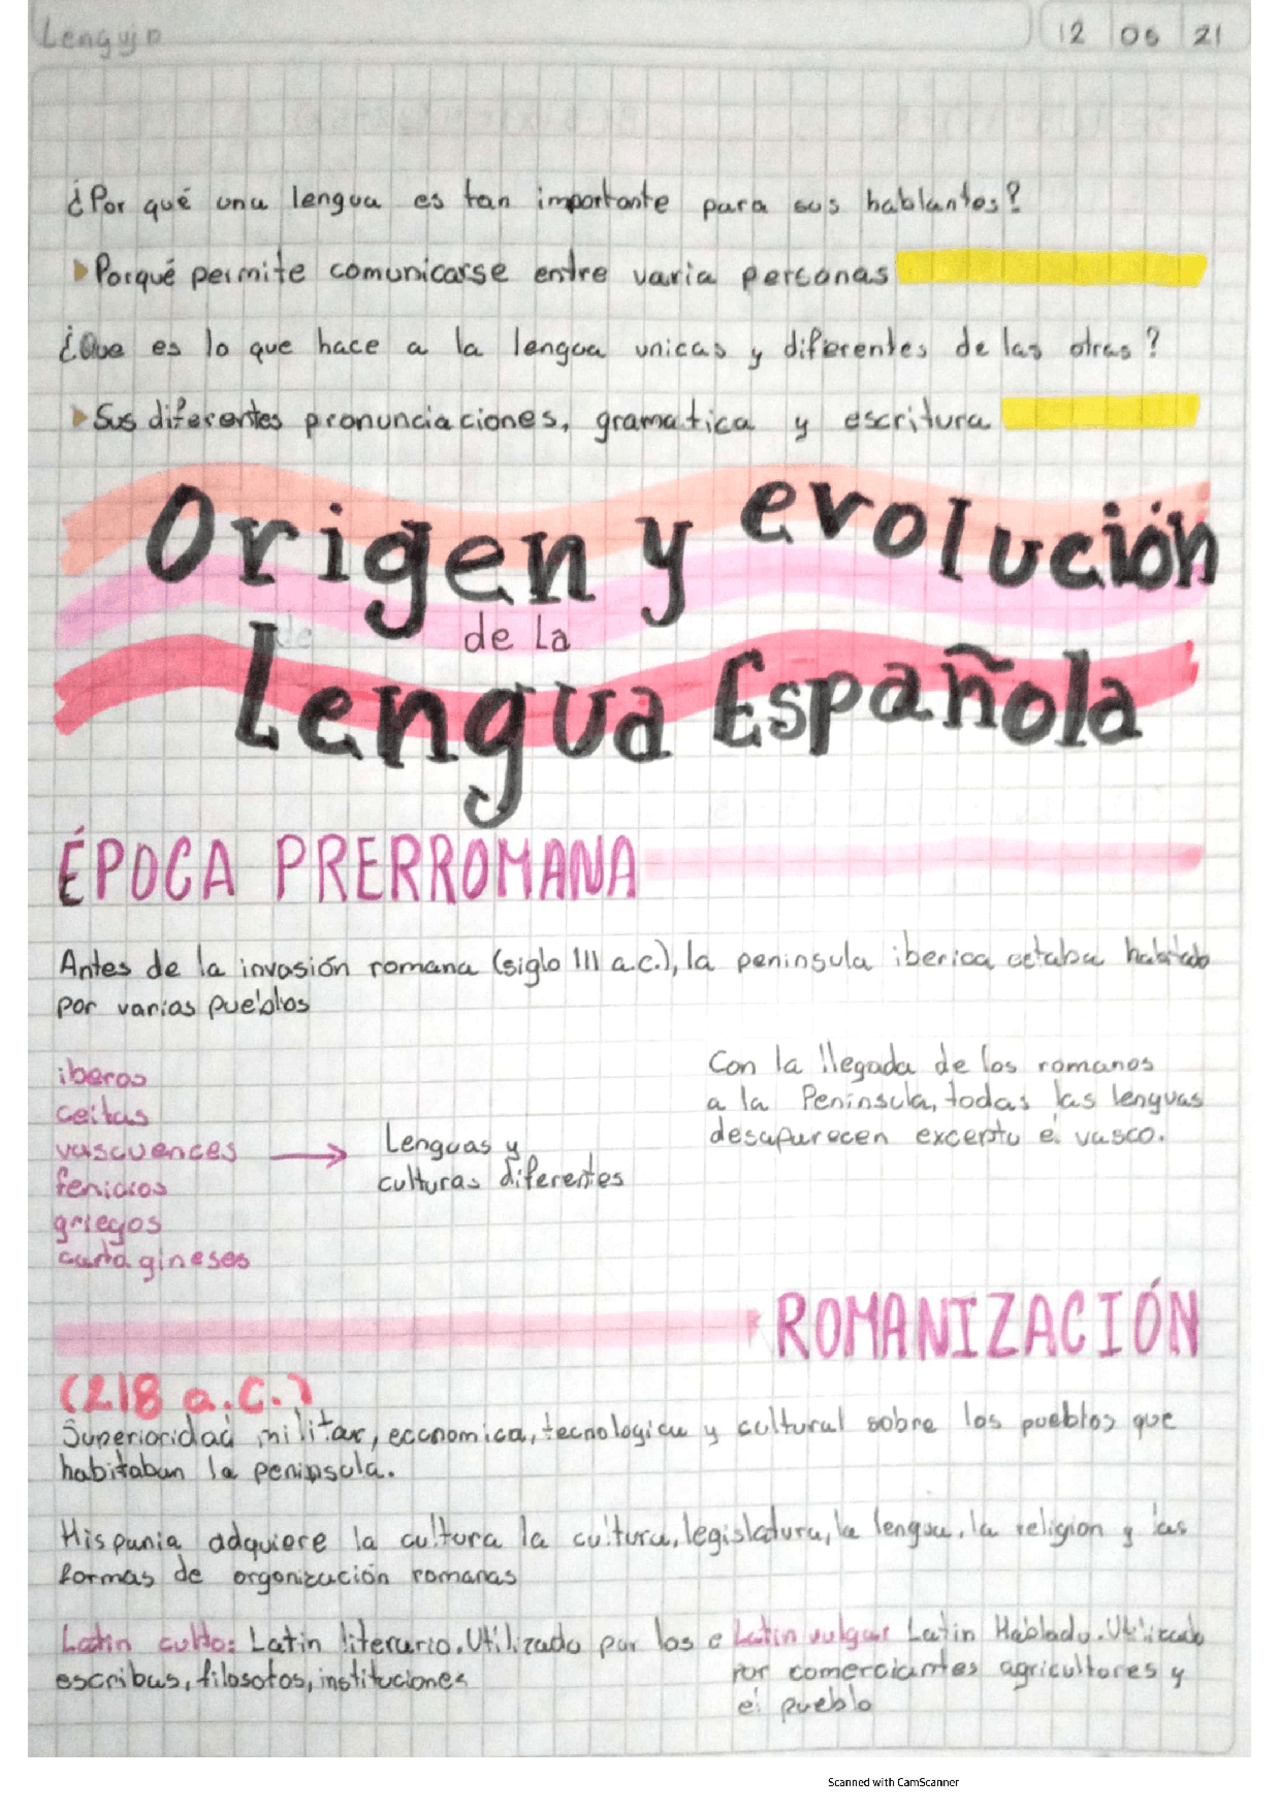 Lenguje
12 06 21
¿Por qué una lengua es tan importante para sus hablantes?
Porqué permite comunicarse entre varia personas
¿Que es lo que hace a la lengua unicas y diferentes de las otras?
Sus diferentes pronunciaciones, gramatica y escritura
Origen y evolución
de la
Lengua Española
ÉPOCA PRERROMANA
Antes de la invasión romana (siglo III a.c.), la peninsula iberica estaba habitado
por varias pueblos
iberos
celtas
vascuences
fenicios
griegos
cartagineses
Lenguas y
culturas diferentes
Con la llegada de los romanos
a la Peninsula, todas las lenguas
desaparecen excepto el vasco.
ROMANIZACIÓN
(218 a.C.)
Superioridad militar, economica, tecnologica y cultural sobre los pueblos que
habitaban la peninsula.
Hispania adquiere la cultura la cultura, legislatura, la lengua, la religion y las
formas de organización romanas
Latin culto: Latin literario. Utilizado por los e
escribas, filosofos, instituciones
Latin vulgar Latin Hablado. Utilizado
por comerciantes agricultores y
el pueblo
Scanned with CamScanner